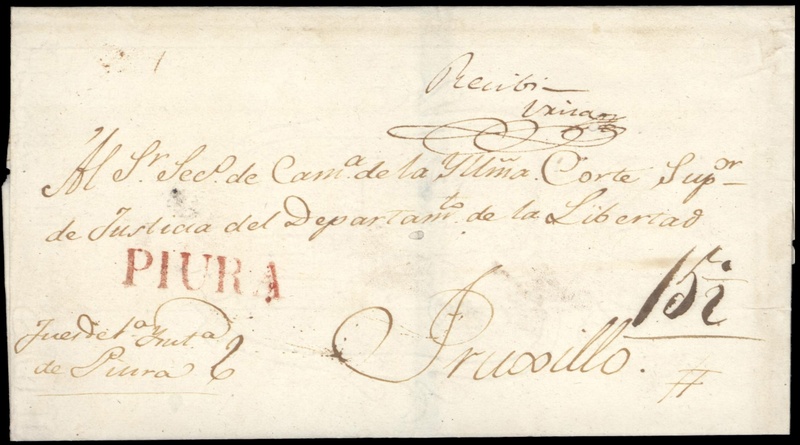 Recibi
Al Sr. Seco. de Cama. de la Yllma. Corte Supor.
de Justicia del Departamto. de la Libertad
PIURA
15
Juez de 1a. Ynsta.
de Piura
Truxillo.